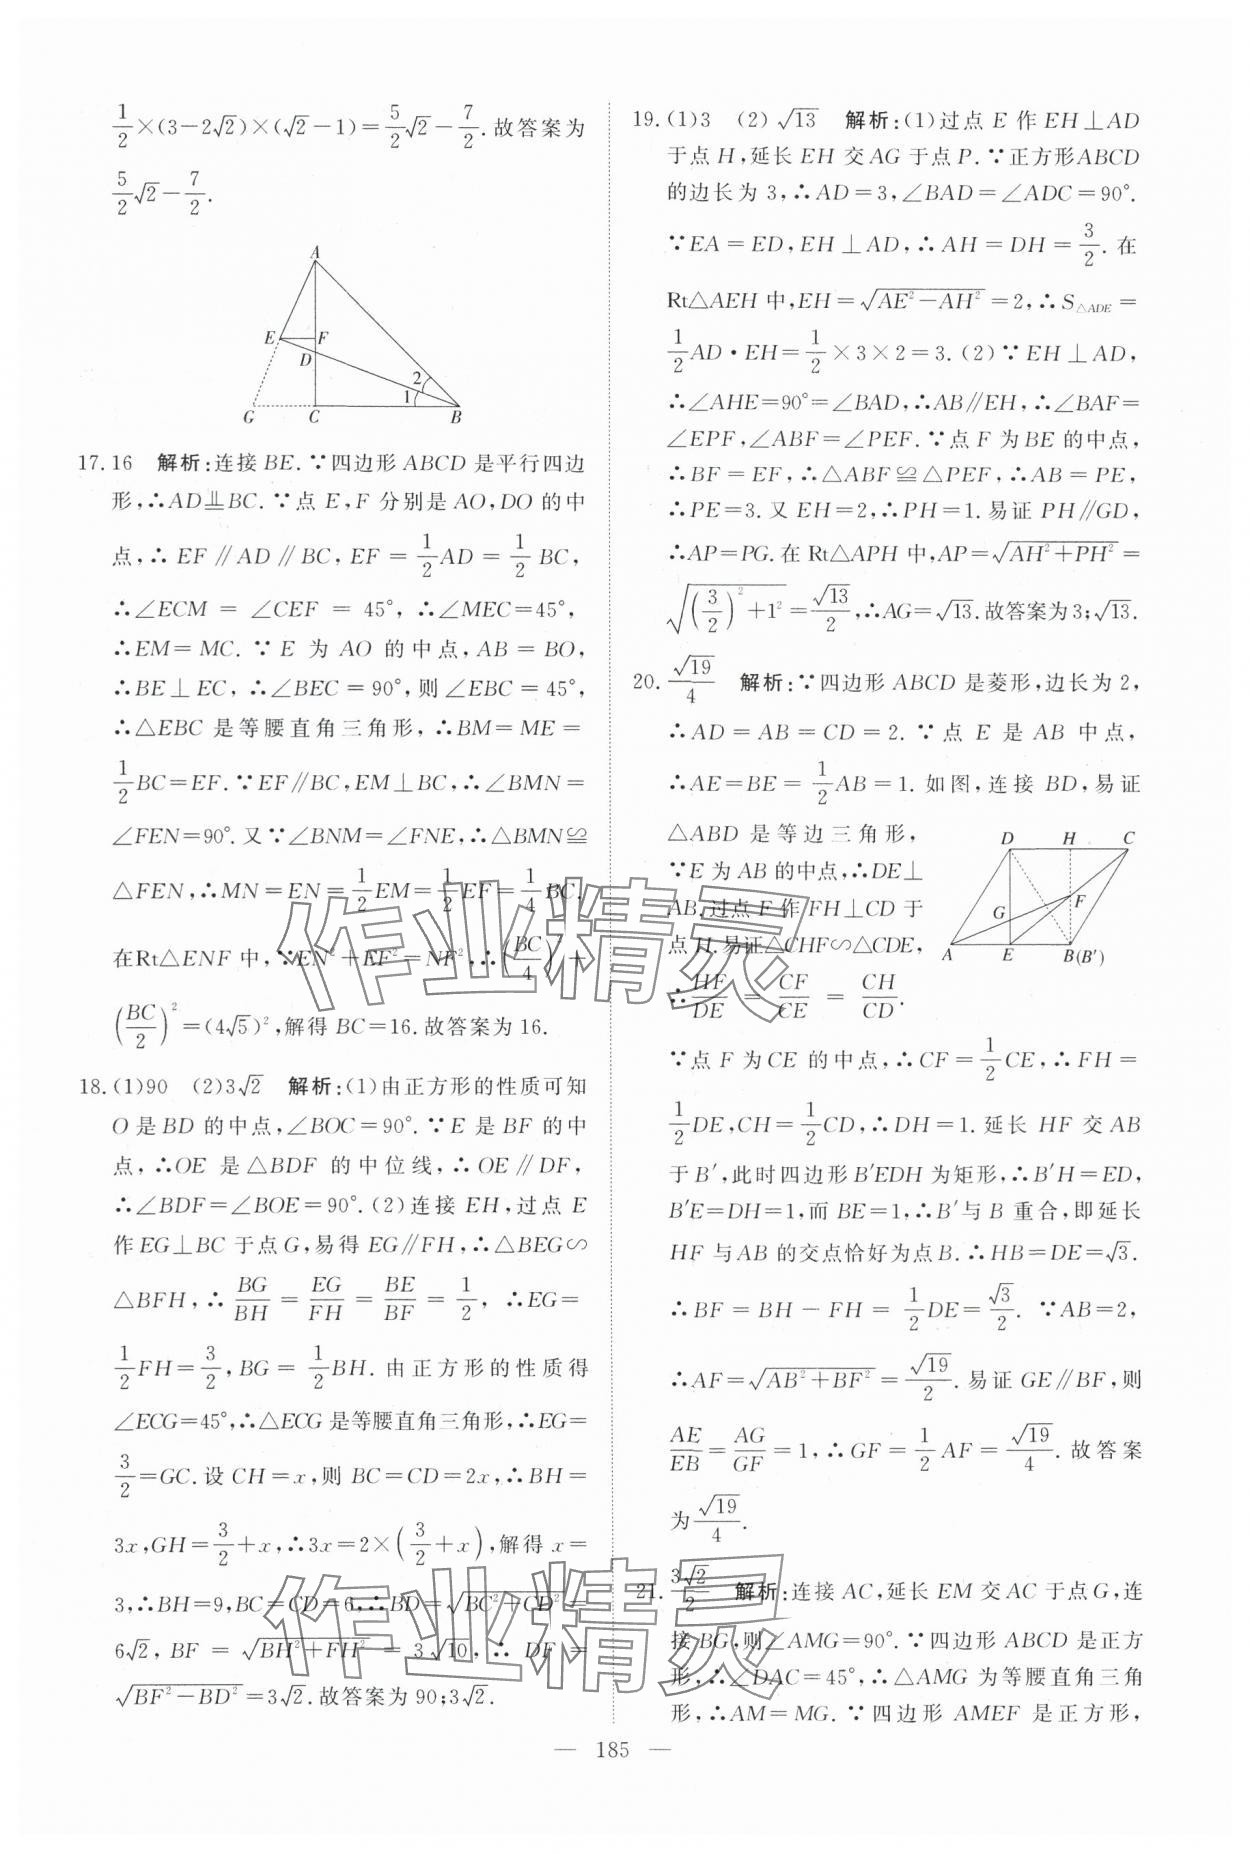 1/2×(3-2√2)×(√2-1)=5/2√2-7/2.故答案为
5/2√2-7/2.
A
E F
D
2
1
G C B
17.16 解析:连接BE.∵四边形ABCD是平行四边
形,∴AD⫫BC.∵点E,F分别是AO,DO的中
点,∴EF∥AD∥BC,EF=1/2AD=1/2BC,
∴∠ECM=∠CEF=45°,∴∠MEC=45°,
∴EM=MC.∵E为AO的中点,AB=BO,
∴BE⊥EC,∴∠BEC=90°,则∠EBC=45°,
∴△EBC是等腰直角三角形,∴BM=ME=
1/2BC=EF.∵EF∥BC,EM⊥BC,∴∠BMN=
∠FEN=90°.又∵∠BNM=∠FNE,∴△BMN≌
△FEN,∴MN=EN=1/2EM=1/2EF=1/4BC.
在Rt△ENF中,∵EN²+EF²=NF²,∴(BC/4)²+
(BC/2)²=(4√5)²,解得BC=16.故答案为16.
18.(1)90 (2)3√2 解析:(1)由正方形的性质可知
O是BD的中点,∠BOC=90°.∵E是BF的中
点,∴OE是△BDF的中位线,∴OE∥DF,
∴∠BDF=∠BOE=90°.(2)连接EH,过点E
作EG⊥BC于点G,易得EG∥FH,∴△BEG∽
△BFH,∴BG/BH=EG/FH=BE/BF=1/2,∴EG=
1/2FH=3/2,BG=1/2BH.由正方形的性质得
∠ECG=45°,∴△ECG是等腰直角三角形,∴EG=
3/2=GC.设CH=x,则BC=CD=2x,∴BH=
3x,GH=3/2+x,∴3x=2×(3/2+x),解得x=
3,∴BH=9,BC=CD=6,∴BD=√(BC²+CD²)=
6√2,BF=√(BH²+FH²)=3√10,∴DF=
√(BF²-BD²)=3√2.故答案为90;3√2.
19.(1)3 (2)√13 解析:(1)过点E作EH⊥AD
于点H,延长EH交AG于点P.∵正方形ABCD
的边长为3,∴AD=3,∠BAD=∠ADC=90°.
∵EA=ED,EH⊥AD,∴AH=DH=3/2.在
Rt△AEH中,EH=√(AE²-AH²)=2,∴S△ADE=
1/2AD·EH=1/2×3×2=3.(2)∵EH⊥AD,
∴∠AHE=90°=∠BAD,∴AB∥EH,∴∠BAF=
∠EPF,∠ABF=∠PEF.∵点F为BE的中点,
∴BF=EF,∴△ABF≌△PEF,∴AB=PE,
∴PE=3.又EH=2,∴PH=1.易证PH∥GD,
∴AP=PG.在Rt△APH中,AP=√(AH²+PH²)=
√((3/2)²+1²)=√13/2,∴AG=√13.故答案为3;√13.
20.√19/4 解析:∵四边形ABCD是菱形,边长为2,
∴AD=AB=CD=2.∵点E是AB中点,
∴AE=BE=1/2AB=1.如图,连接BD,易证
△ABD是等边三角形,
∵E为AB的中点,∴DE⊥
AB.过点F作FH⊥CD于
点H.易证△CHF∽△CDE,
∴HF/DE=CF/CE=CH/CD.
D H C
G F
A E B(B')
∵点F为CE的中点,∴CF=1/2CE,∴FH=
1/2DE,CH=1/2CD,∴DH=1.延长HF交AB
于B',此时四边形B'EDH为矩形,∴B'H=ED,
B'E=DH=1,而BE=1,∴B'与B重合,即延长
HF与AB的交点恰好为点B.∴HB=DE=√3.
∴BF=BH-FH=1/2DE=√3/2.∵AB=2,
∴AF=√(AB²+BF²)=√19/2.易证GE∥BF,则
AE/EB=AG/GF=1,∴GF=1/2AF=√19/4.故答案
为√19/4.
21.3√2/2 解析:连接AC,延长EM交AC于点G,连
接BG,则∠AMG=90°.∵四边形ABCD是正方
形,∴∠DAC=45°,∴△AMG为等腰直角三角
形,∴AM=MG.∵四边形AMEF是正方形,
— 185 —
作业精灵
作业精灵